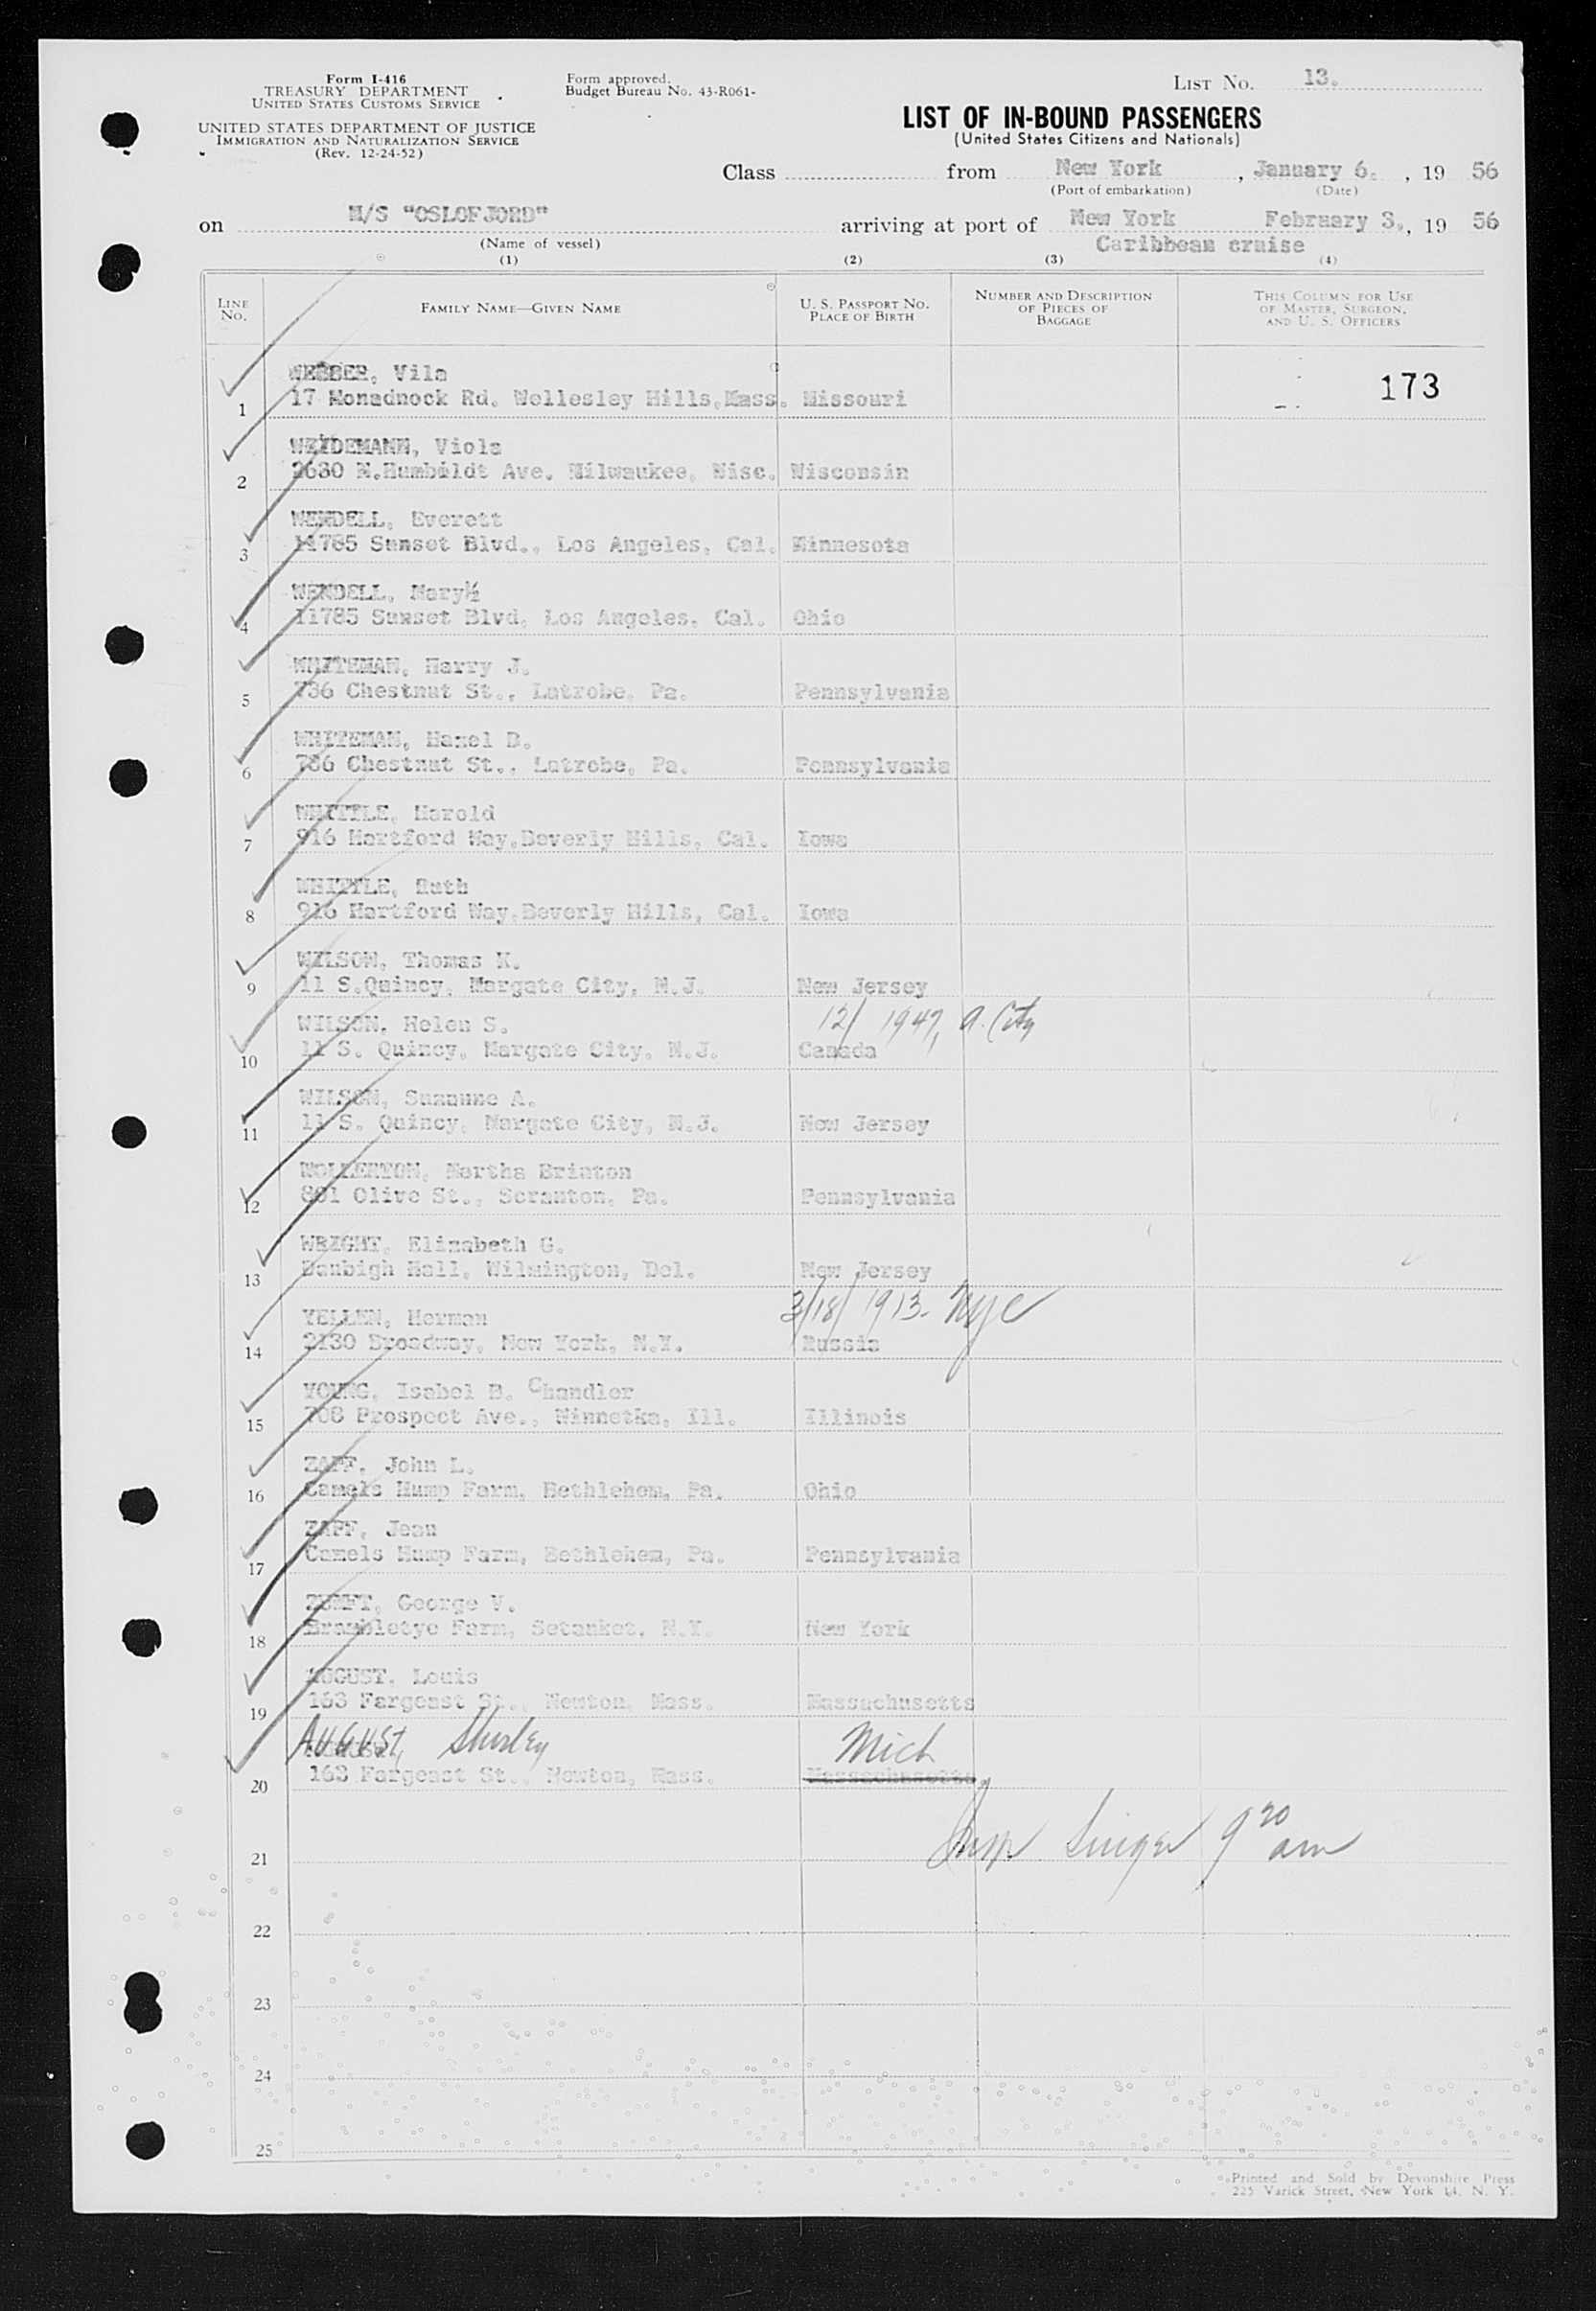 Form I-416
TREASURY DEPARTMENT
UNITED STATES CUSTOMS SERVICE
UNITED STATES DEPARTMENT OF JUSTICE
IMMIGRATION AND NATURALIZATION SERVICE
(Rev. 12-24-52)
Form approved.
Budget Bureau No. 43-R061-
LIST NO. 13.
LIST OF IN-BOUND PASSENGERS
(United States Citizens and Nationals)
Class from New York, January 6., 19 56
(Port of embarkation) (Date)
on M/S "OSLOFJORD" arriving at port of New York February 3., 19 56
(Name of vessel) Caribbean cruise
(1) (2) (3) (4)
LINE NO. FAMILY NAME—GIVEN NAME U. S. PASSPORT NO. PLACE OF BIRTH NUMBER AND DESCRIPTION OF PIECES OF BAGGAGE THIS COLUMN FOR USE OF MASTER, SURGEON, AND U. S. OFFICERS
WEBBER, Vila
1 17 Monadnock Rd. Wellesley Hills, Mass. Missouri 173
WEIDEMANN, Viola
2 2630 N.Humboldt Ave. Milwaukee, Wisc. Wisconsin
WENDELL, Everett
3 11785 Sunset Blvd., Los Angeles, Cal. Minnesota
WENDELL, Mary
4 11785 Sunset Blvd. Los Angeles, Cal. Ohio
WHITEMAN, Harry J.
5 736 Chestnut St., Latrobe, Pa. Pennsylvania
WHITEMAN, Hazel D.
6 736 Chestnut St., Latrobe, Pa. Pennsylvania
WHITTLE, Harold
7 916 Hartford Way, Beverly Hills, Cal. Iowa
WHITTLE, Ruth
8 916 Hartford Way, Beverly Hills, Cal. Iowa
WILSON, Thomas K.
9 11 S.Quincy, Margate City, N.J. New Jersey
WILSON, Helen S. 12/ 1947, A. City
10 11 S. Quincy, Margate City, N.J. Canada
WILSON, Suzanne A.
11 11 S. Quincy, Margate City, N.J. New Jersey
WOLLERTON, Martha Brinton
12 801 Olive St., Scranton, Pa. Pennsylvania
WRIGHT, Elizabeth G.
13 Danbigh Hall, Wilmington, Del. New Jersey
YELLEN, Herman 3/18/1913- NYC
14 2130 Broadway, New York, N.Y. Russia
YOUNG, Isabel B. Chandler
15 708 Prospect Ave., Winnetka, Ill. Illinois
ZAPF, John L.
16 Camels Hump Farm, Bethlehem, Pa. Ohio
ZAPF, Jean
17 Camels Hump Farm, Bethlehem, Pa. Pennsylvania
ZUMFT, George V.
18 Brambletye Farm, Setauket, N.Y. New York
AUGUST, Louis
19 163 Fargeast St., Newton, Mass. Massachusetts
AUGUST, Shirley Mich
20 163 Fargeast St., Newton, Mass. Massachusetts
Insp Singer 9 20 am
21
22
23
24
25
Printed and Sold by Devonshire Press
225 Varick Street, New York 14, N. Y.